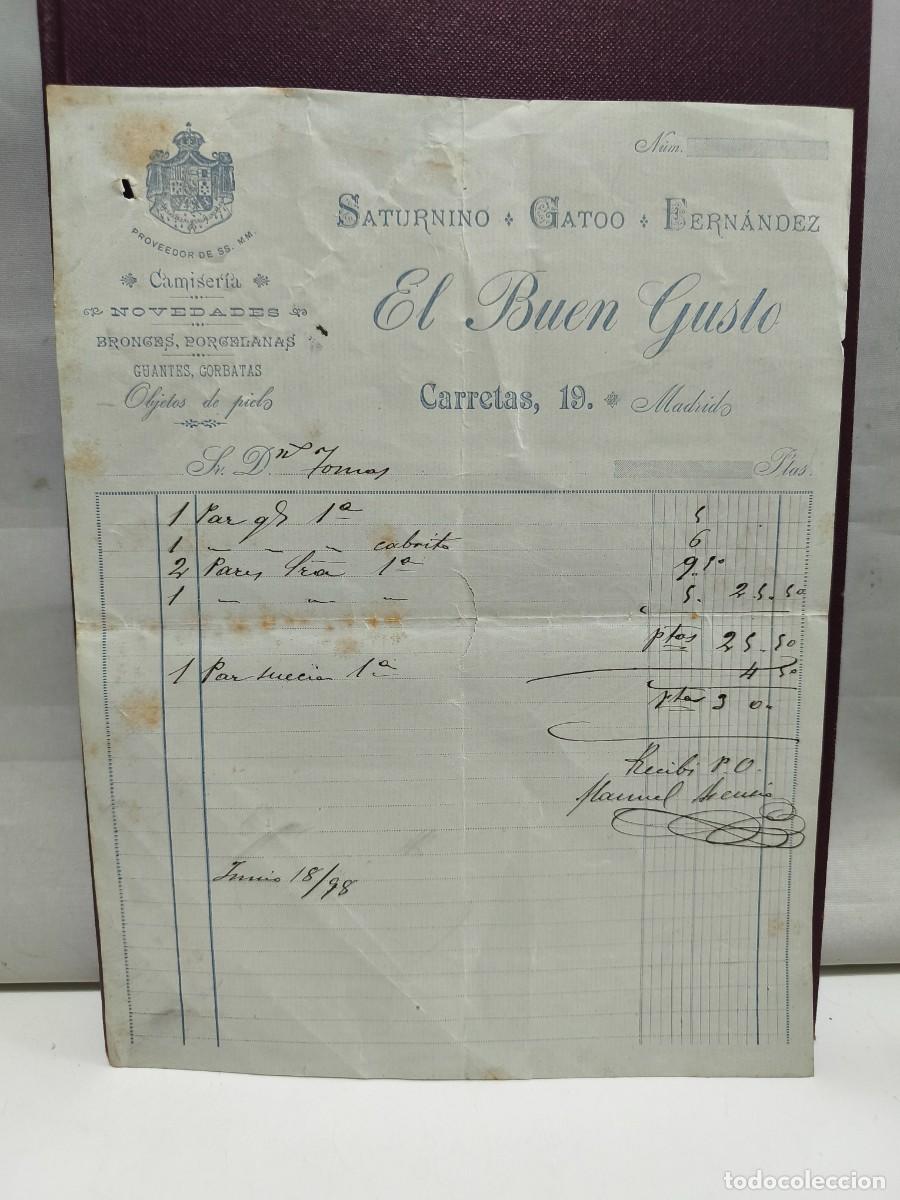 Núm.
PROVEEDOR DE SS. MM.
Camisería
NOVEDADES
BRONCES, PORCELANAS
GUANTES, CORBATAS
Objetos de piel
SATURNINO GATOO FERNÁNDEZ
El Buen Gusto
Carretas, 19. Madrid
Sr. Dn Tomas Ptas.
1 Par 1ª 5
1 " " " cabrito 6
2 Pares Sra 1ª 9.50
1 " " " 5. 25.50
ptas 25.50
1 Par suecia 1ª 4 50
ptas 30.
Recibí P.O.
Manuel Asensio
Junio 18/98
todocoleccion